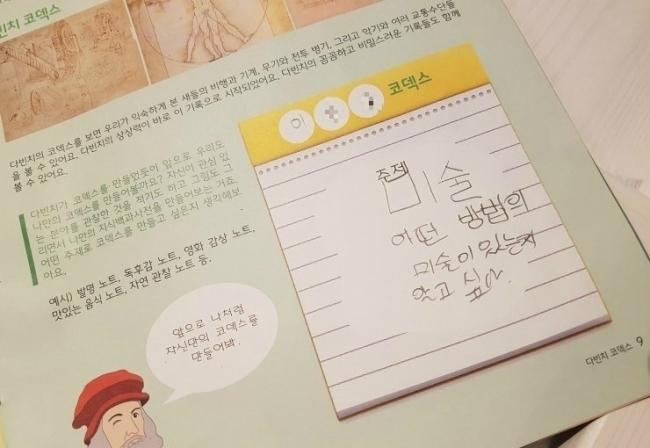 빈치 코덱스
다빈치의 코덱스를 보면 우리가 익숙하게 본 새들의 비행과 기계, 무기와 전투 병기, 그리고 악기와 여러 교통수단들
을 볼 수 있어요. 다빈치의 상상력이 바로 이 기록으로 시작되었어요. 다빈치의 꼼꼼하고 비밀스러운 기록들도 함께
볼 수 있어요.
다빈치가 코덱스를 만들었듯이 앞으로 우리도
나만의 코덱스를 만들어볼까요? 자신이 관심 있
는 분야를 관찰한 것을 적기도 하고 그림도 그
리면서 나만의 지식백과사전을 만들어보는 거죠.
어떤 주제로 코덱스를 만들고 싶은지 생각해보
아요.
예시) 발명 노트, 독후감 노트, 영화 감상 노트,
맛있는 음식 노트, 자연 관찰 노트 등.
앞으로 나처럼
자신만의 코덱스를
만들어봐.
이 코덱스
주제
미술
어떤 방법의
미술이 있는지
알고 싶다.
다빈치 코덱스 9